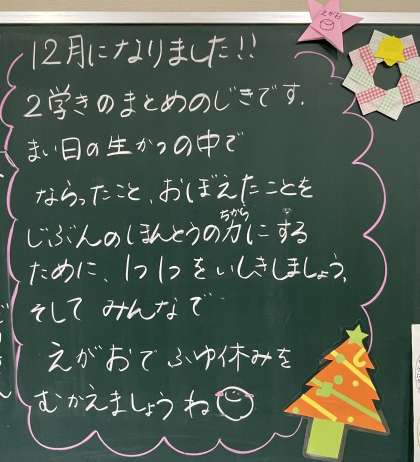 えがお
12月になりました!!
2学きのまとめのじきです。
まい日の生かつの中で
ならったこと、おぼえたことを
じぶんのほんとうの力にする
ちから
ために、1つ1つをいしきしましょう。
そして みんなで
えがおで ふゆ休みを
むかえましょうね